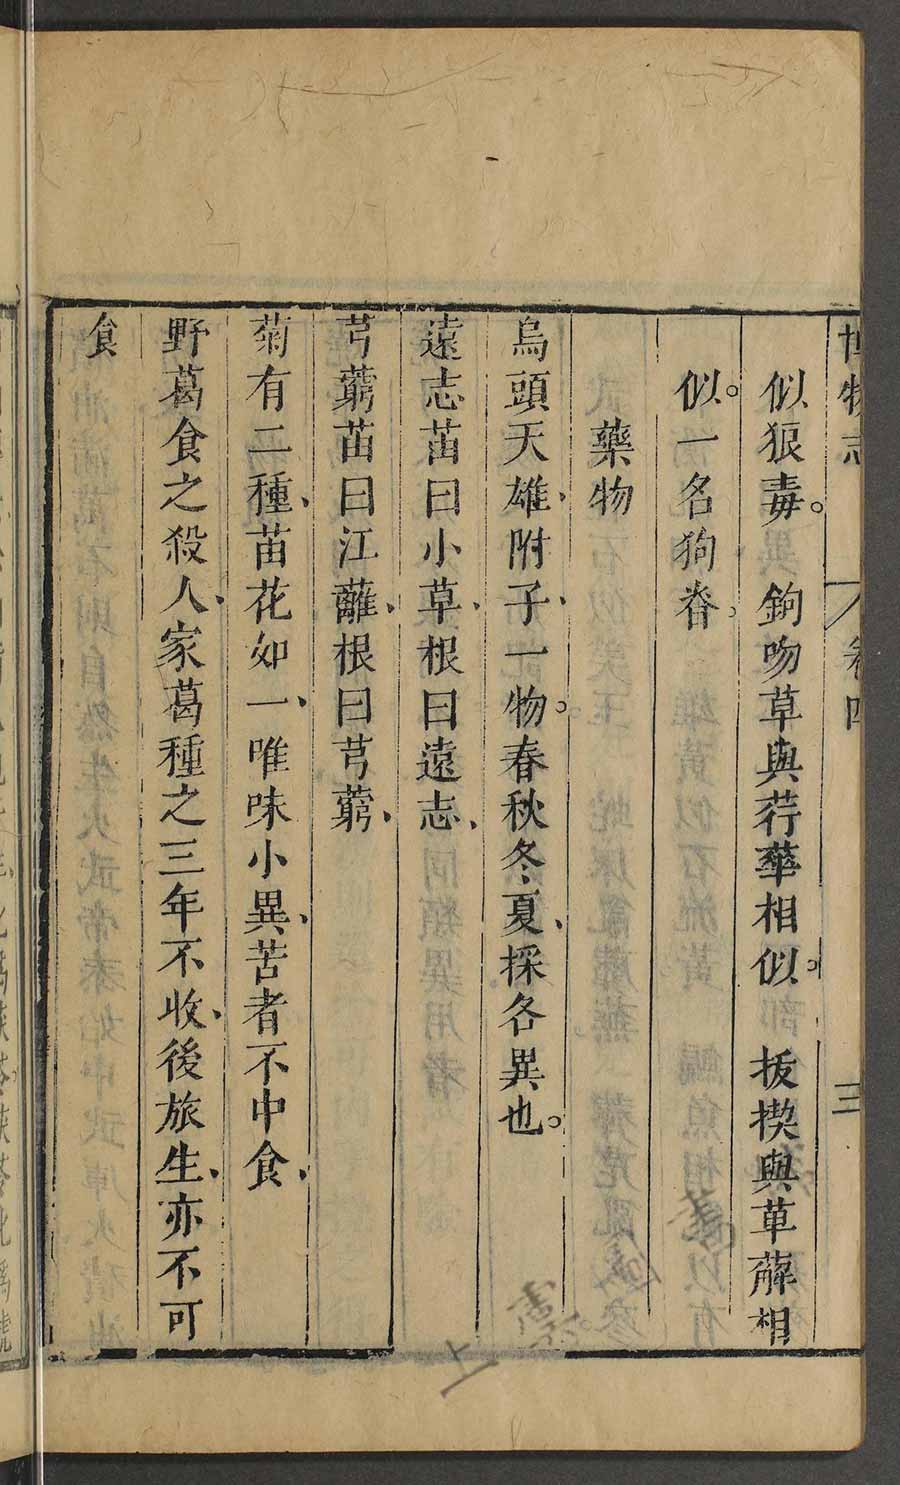 博物志 卷四 三
似狼毒。 鉤吻草與荇華相似。 拔揳與草薢相
似。一名狗脊。
藥物
烏頭天雄、附子、一物。春秋冬夏、採各異也。
遠志苗曰小草、根曰遠志、
芎藭苗曰江蘺、根曰芎藭、
菊有二種、苗花如一、唯味小異、苦者不中食、
野葛食之殺人、家葛種之三年不收、後旅生、亦不可
食